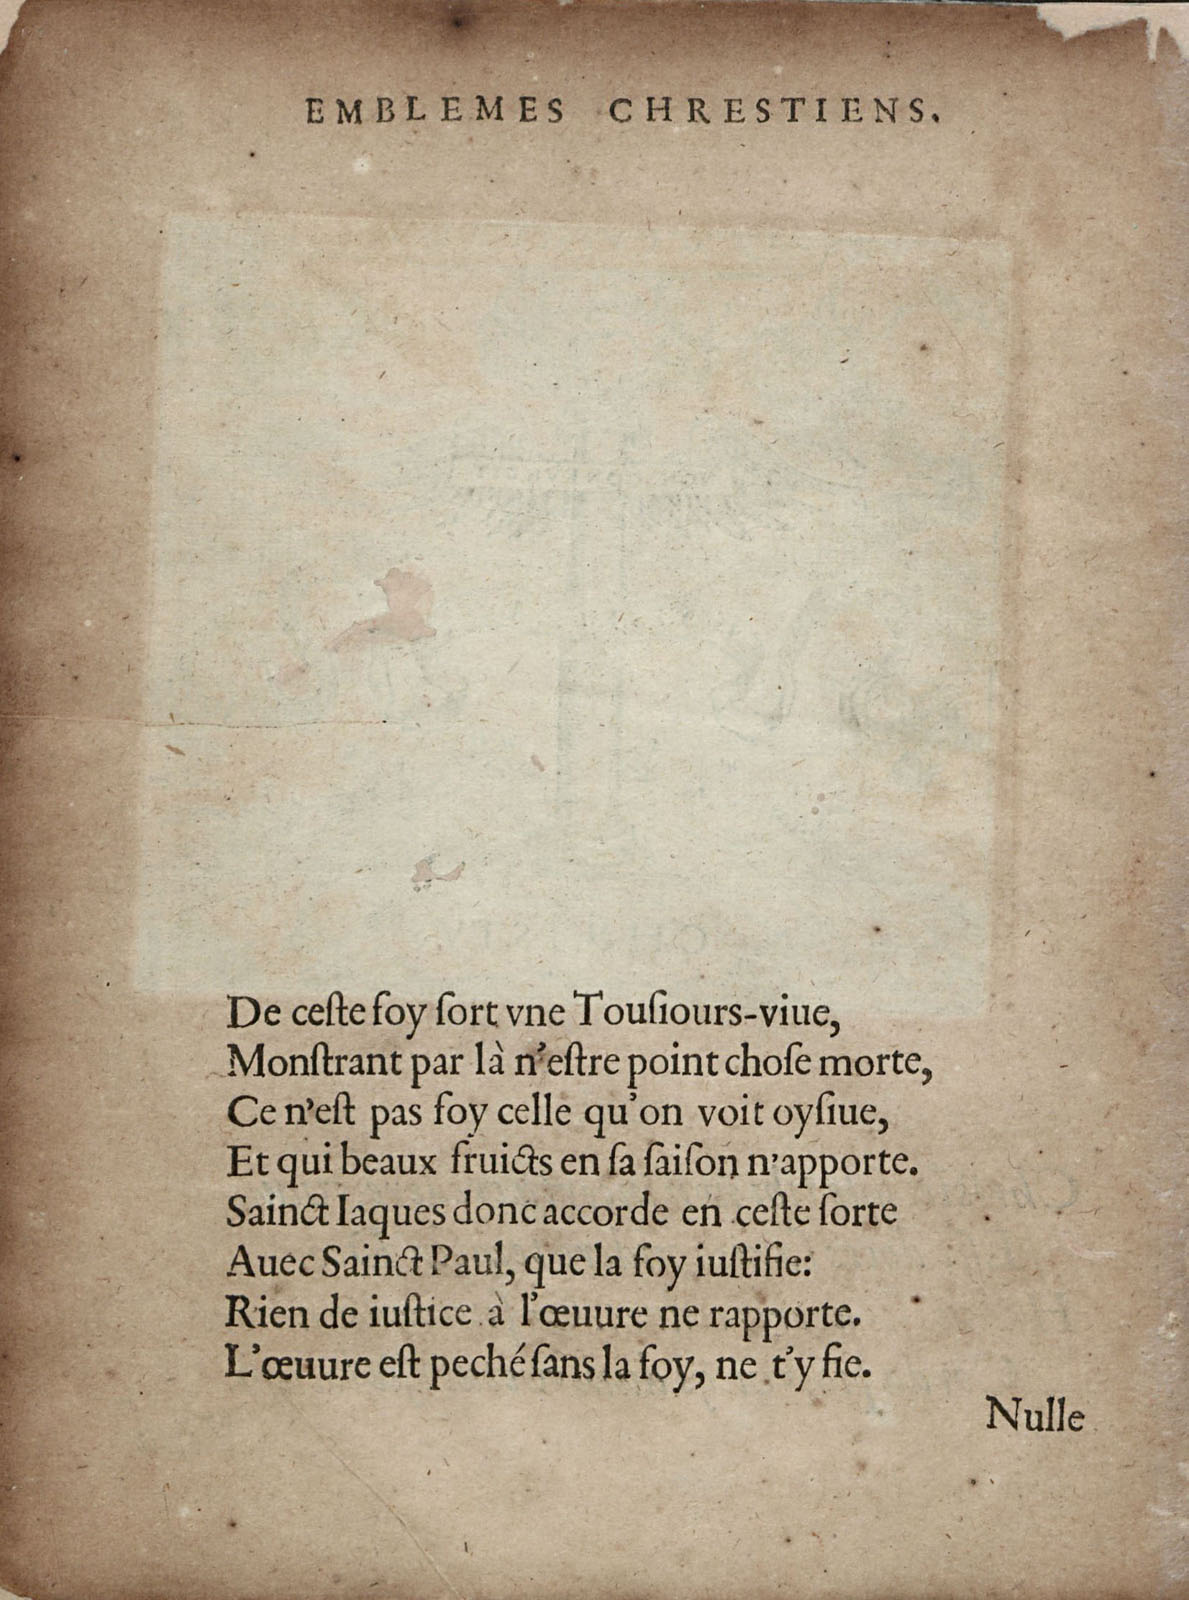 EMBLEMES CHRESTIENS.
De ceſte foy ſort vne Touſiours-viue,
Monſtrant par là n'eſtre point choſe morte,
Ce n'eſt pas foy celle qu'on voit oyſiue,
Et qui beaux fruicts en ſa ſaiſon n'apporte.
Sainct Iaques donc accorde en ceſte ſorte
Auec Sainct Paul, que la foy iuſtifie:
Rien de iuſtice à l'œuure ne rapporte.
L'œuure eſt peché ſans la foy, ne t'y fie.
Nulle